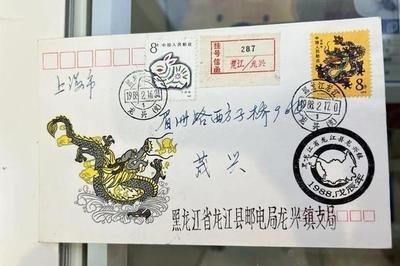 8分
中国人民邮政
挂号信函
287
龙江/龙兴
中国人民邮政
8分
上海市
1988.2.16.
1988.2.17.0
眉州路西方子桥9
茂兴
黑龙江省龙江县龙兴镇
1988.戊辰年
黑龙江省龙江县邮电局龙兴镇支局